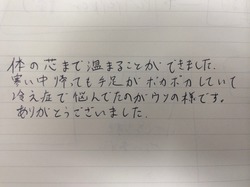 体の芯まで温まることができました.
寒い中帰っても手足がポカポカしていて
冷え症で悩んでたのがウソの様です。
ありがとうございました.